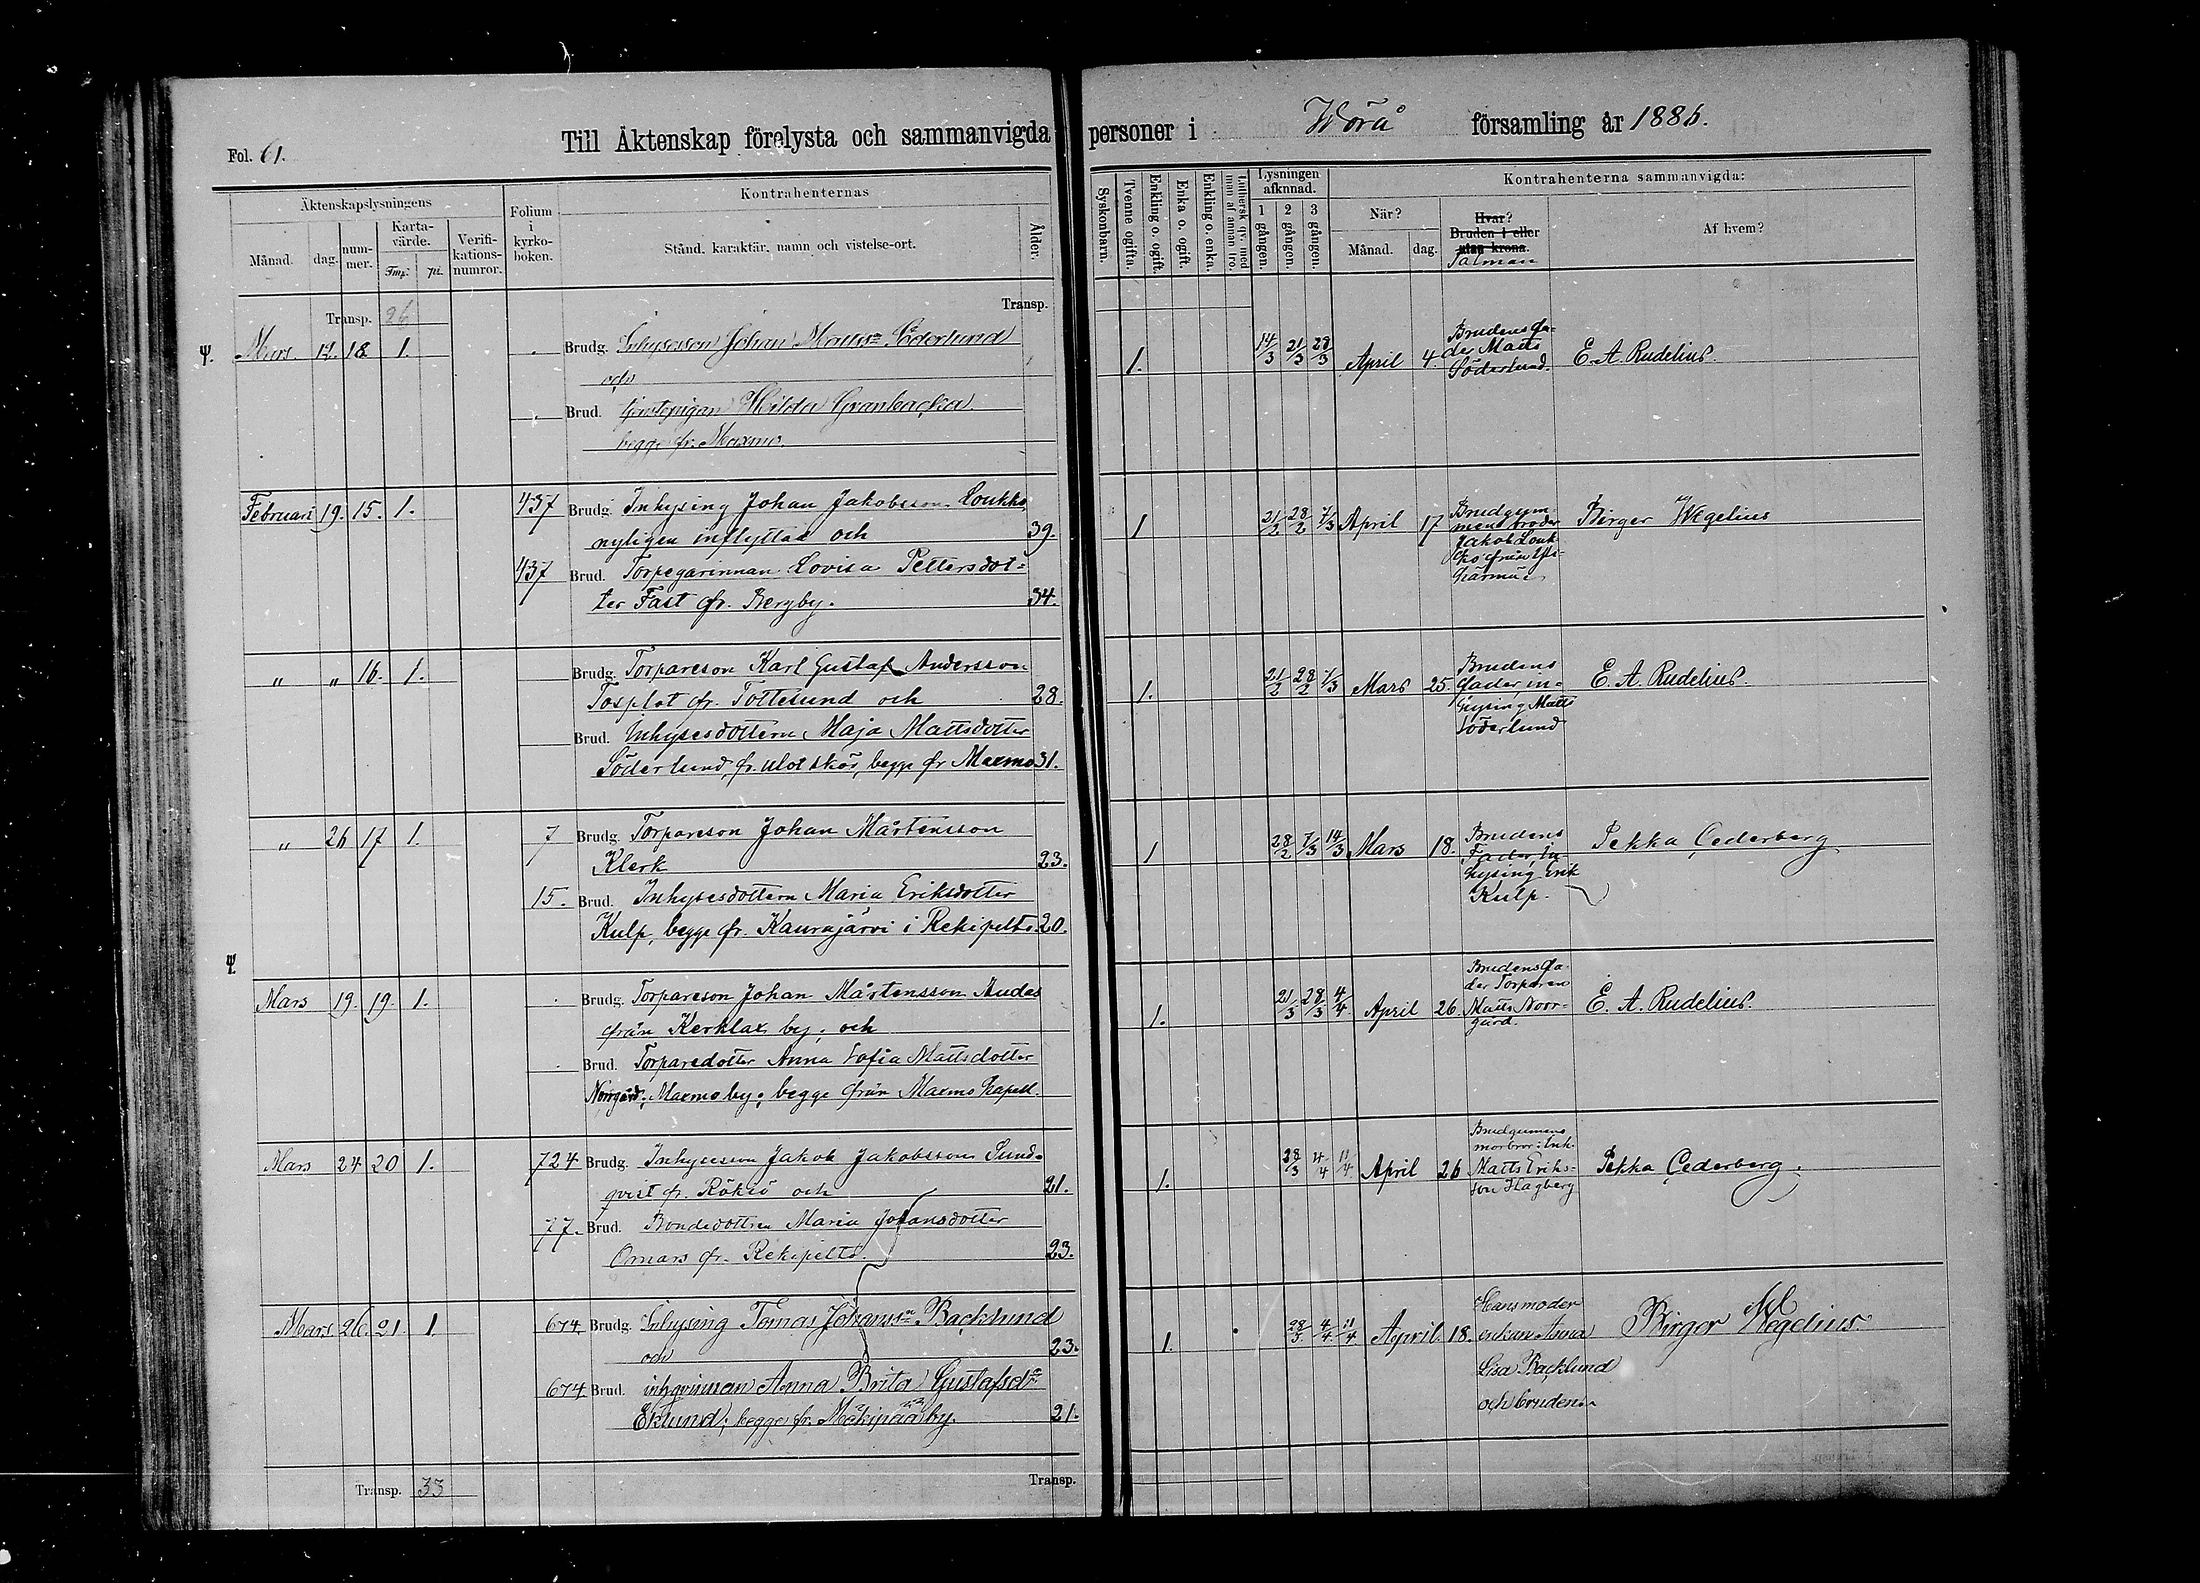 Fol. 61.
Till Äktenskap förelysta och sammanvigda personer i Wörå församling år 1886.
Äktenskapslysningens
Månad.
dag.
nummer.
Kartavärde.
Fmk.
pi.
Verifikationsnumror.
Folium i kyrkoboken.
Kontrahenternas
Stånd, karaktär, namn och vistelse-ort.
Ålder.
Syskonbarn.
Tvenne ogifta.
Enkling o. ogift.
Enka o. ogift.
Enkling o. enka.
Luthersk qv. med man af annan tro.
Lysningen afknnad.
1 gången.
2 gången.
3 gången.
Kontrahenterna sammanvigda:
När?
Månad.
dag.
Hvar?
Bruden i eller
utan krona.
Talman
Af hvem?
Transp. 26
Transp.
Mars. 12. 18. 1.
Brudg. Inhyseson Johan Mattsn Söderlund
och
Brud. Gästepigan Hilda Granbacka
begge fr. Maxmo.
1. 14/3 21/3 28/3 April 4.
Brudens fa-
der Matts
Söderlund.
E. A. Rudelius.
Februari 19. 15. 1. 437
Brudg. Inhysing Johan Jakobsson Loukko
nyligen inflyttad och 39.
437 Brud. Torpegarinnan Lovisa Pettersdot-
ter Fast fr. Bergby. 34.
1 21/2 28/2 7/3 April 17
Brudgum-
mens broder
Jakob Louk-
ko från Yli-
härmä
Birger Wegelius
" " 16. 1.
Brudg. Torpareson Karl Gustaf Andersson
Tosplot fr. Tottesund och 28.
Brud. Inhysesdottern Maja Mattsdotter
Söderlund, fr. begge fr Maxmo 31.
1. 21/2 28/2 7/3 Mars 25.
Brudens
fader, in-
hysing Matts
Söderlund
E. A. Rudelius.
" 26 17 1. 7
Brudg. Torpareson Johan Mårtensson
Klerk 23.
15. Brud. Inhysesdottern Maria Eriksdotter
Kulp, begge fr. Kaurajärvi i Rekipelto. 20.
1 28/2 7/3 14/3 Mars 18.
Brudens
Fader, In
hysing Erik
Kulp.
Pekka Cederberg
Mars 19. 19. 1.
Brudg. Torpareson Johan Mårtensson Andas
från Kerklax by, och
Brud. Torparedotter Anna Sofia Mattsdotter
Norrgård, Maxmo by; begge från Maxmo Kapell.
1. 21/3 28/3 4/4 April 26.
Brudens fa-
der Torparen
Matts Norr-
gård.
E. A. Rudelius.
Mars 24 20 1. 724
Brudg. Inhyseson Jakob Jakobsson Sund-
qvist fr. Rökiö och 21.
77. Brud. Bondedottren Maria Johansdotter
Omars fr. Rekipelto. 23.
1. 28/3 4/4 11/4 April 26
Brudgumens
morbror: Inh.
Matts Eriks-
son Hagberg
Pekka Cederberg.
Mars. 26. 21. 1. 674
Brudg. Inhysing Tomas Johansn Backlund
och 23.
674 Brud. inhysinnan Anna Brita Gustafsdr
Eklund, begge fr. Mäkipää by. 21.
1. 28/3 4/4 11/4 April. 18.
Hans moder
enkan Anna
Lisa Backlund
och brudens
Birger Wegelius.
Transp. 33
Transp.